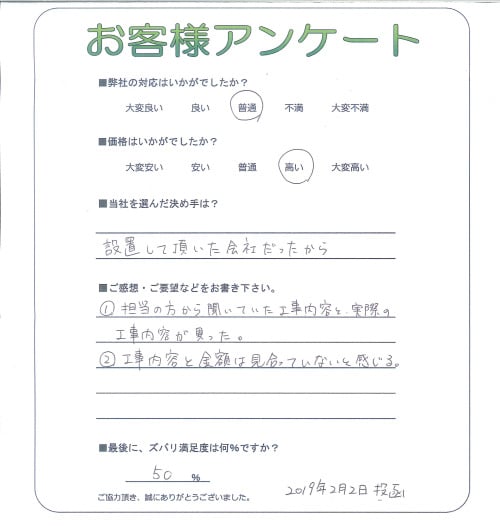 お客様アンケート
■弊社の対応はいかがでしたか?
大変良い 良い 普通 不満 大変不満
■価格はいかがでしたか?
大変安い 安い 普通 高い 大変高い
■当社を選んだ決め手は?
設置して頂いた会社だったから
■ご感想・ご要望などをお書き下さい。
①担当の方から聞いていた工事内容と、実際の
工事内容が異った。
②工事内容と金額は見合っていないと感じる。
■最後に、ズバリ満足度は何%ですか?
50 %
ご協力頂き、誠にありがとうございました。
2019年2月2日 投函